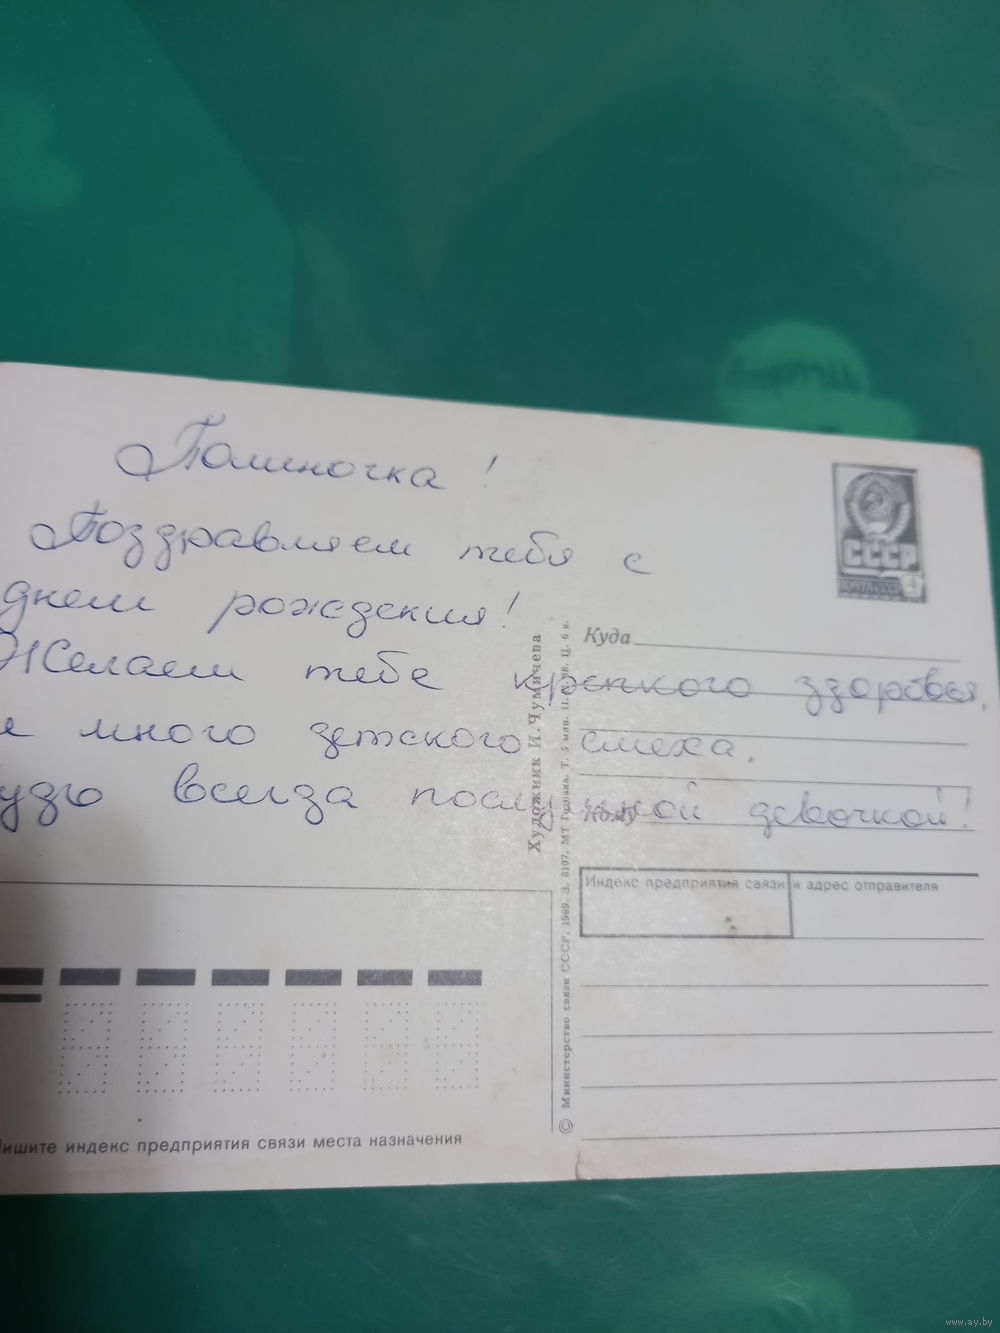 Полиночка!
Поздравляем тебя с
днем рождения!
Желаем тебе крепкого здоровья,
и много детского смеха,
будь всегда послушной девочкой!
СССР
4
Куда
Кому
Индекс предприятия связи и адрес отправителя
Художник И. Чумичева
© Министерство связи СССР, 1989. З. 8107. МТ Гознака. Т. 5 млн. Ц. 6 к.
Пишите индекс предприятия связи места назначения
www.ay.by